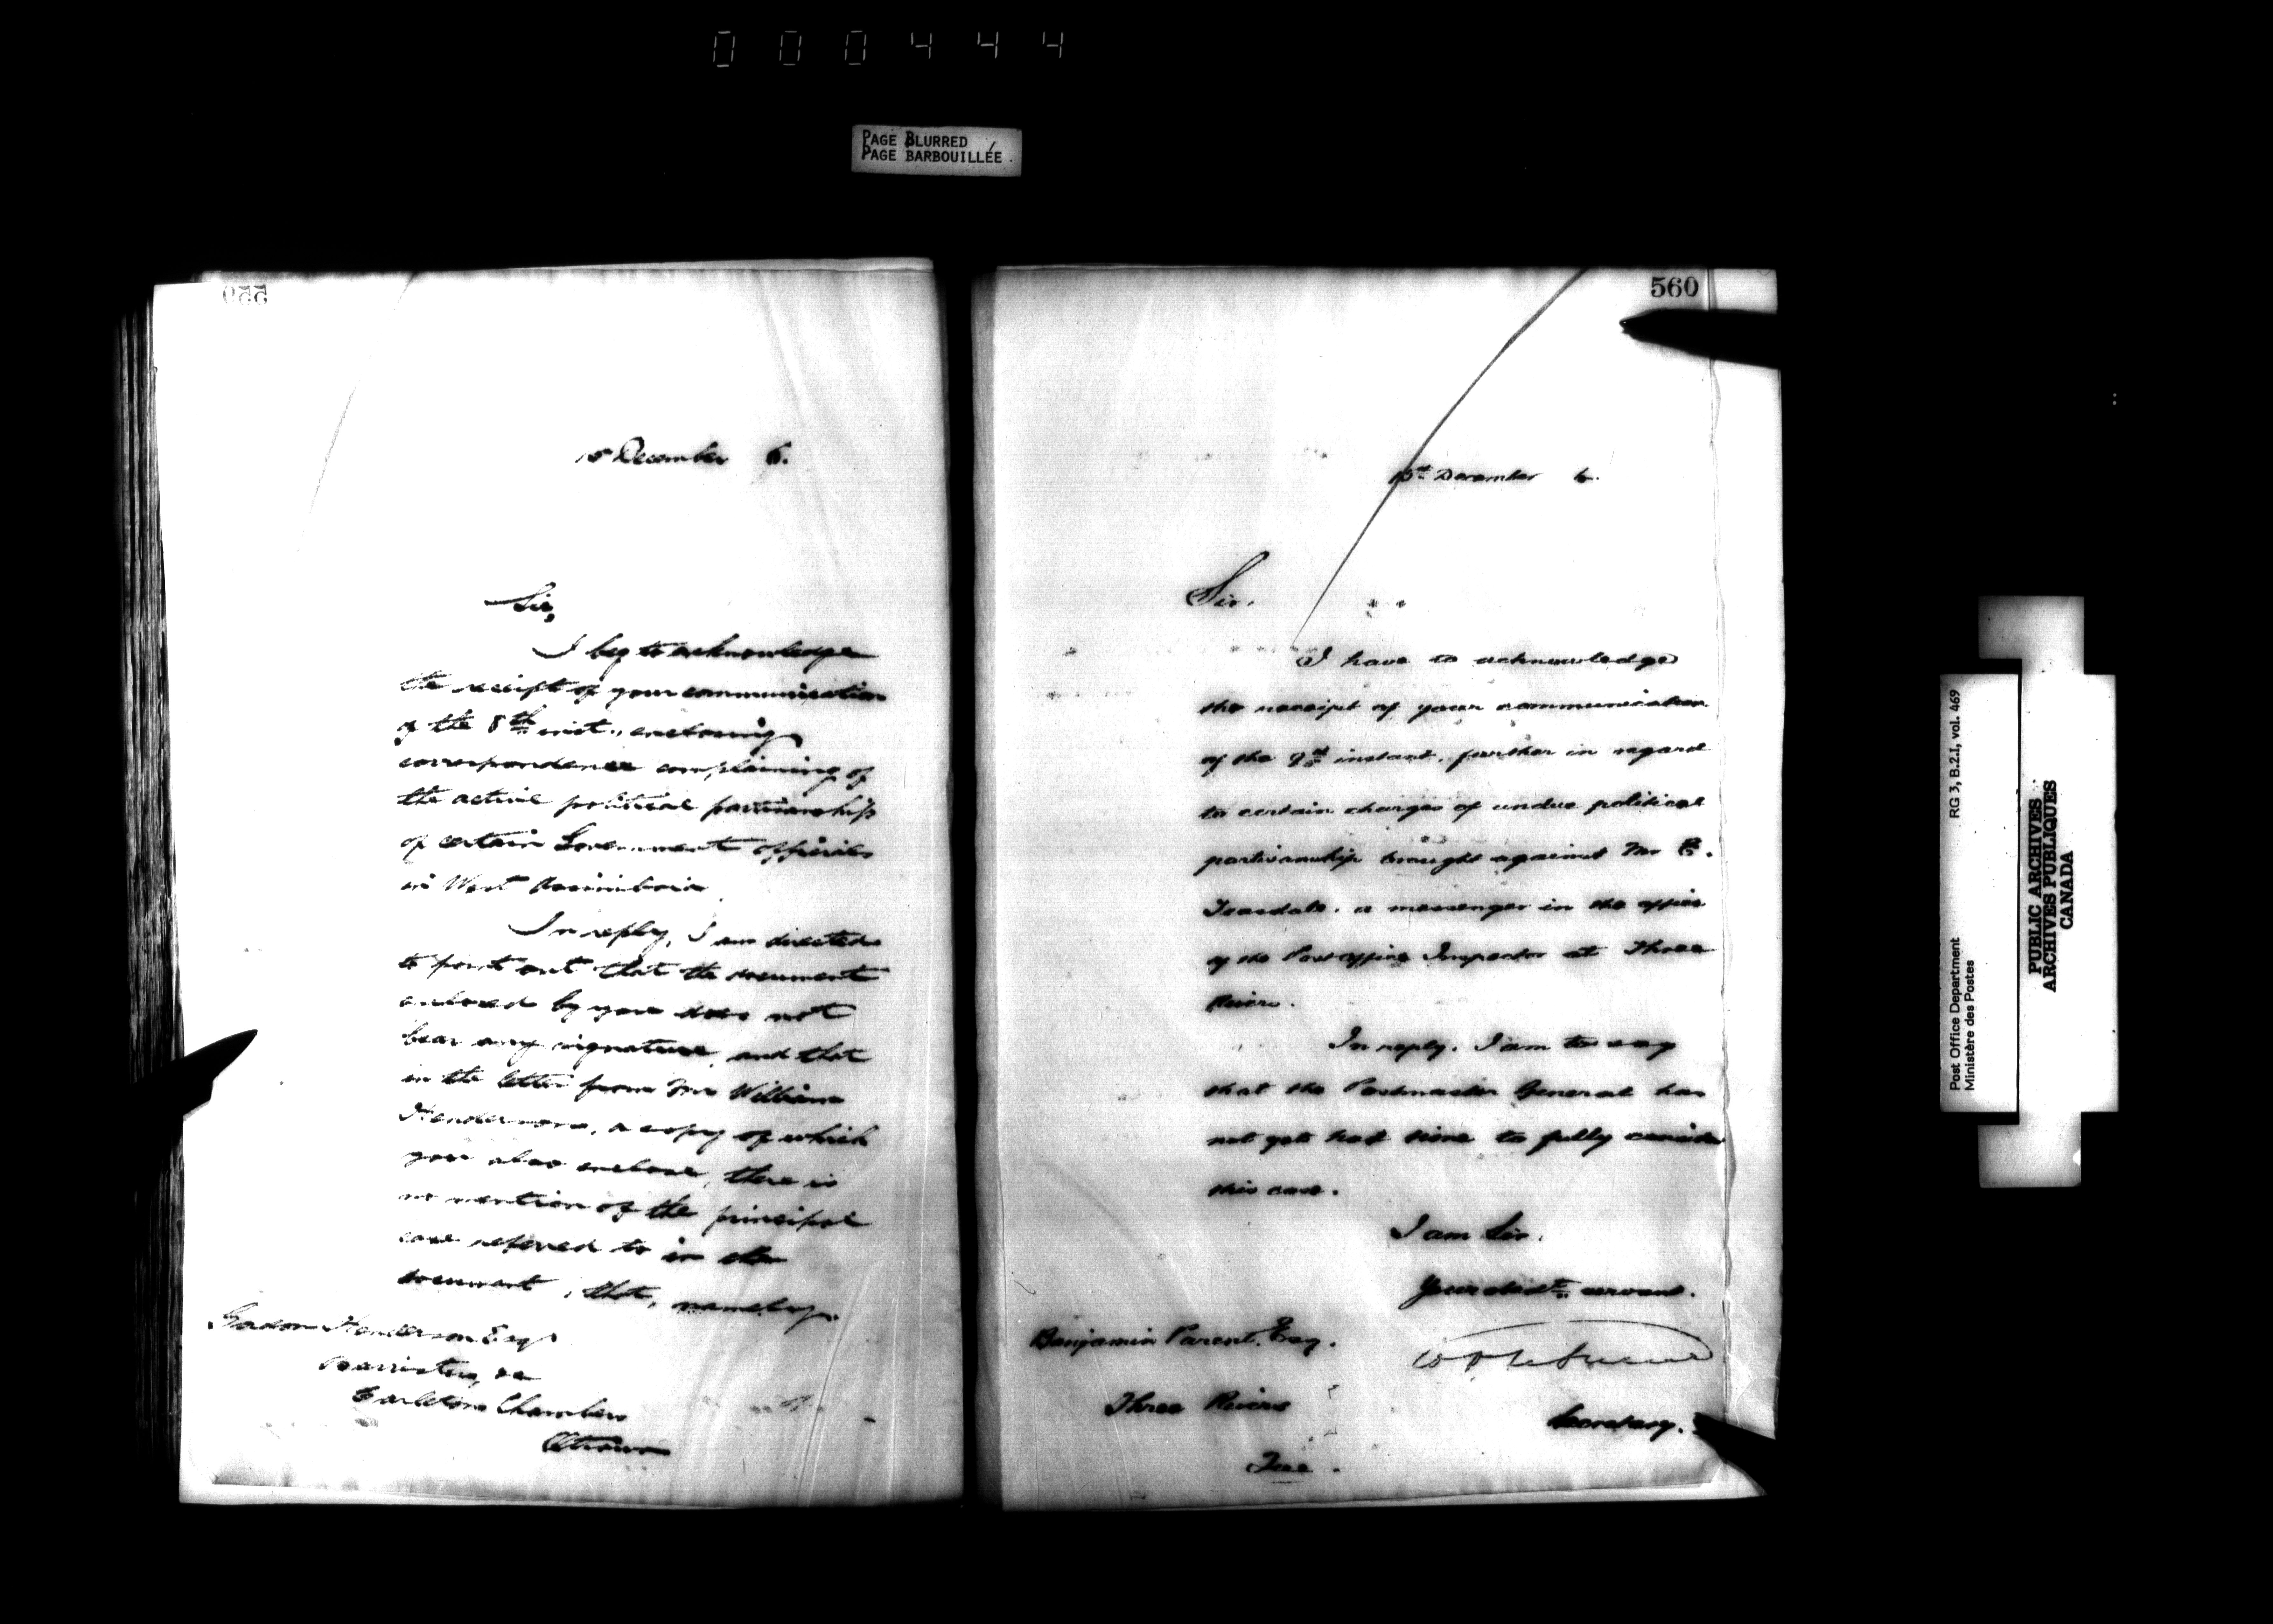 000444
PAGE BLURRED
PAGE BARBOUILLÉE
15 December 6.
Sir,
I beg to acknowledge
the receipt of your communication
of the 8th inst., enclosing
correspondence complaining of
the active political partisanship
of certain Government officials
in West Assiniboia.
In reply, I am directed
to point out that the document
enclosed by you does not
bear any signature, and that
in the letter from Mr William
Henderson, a copy of which
you also enclose, there is
no mention of the principal
case referred to in the
document, that, namely,
Henderson Esq
Barrister, &c
Carleton Chambers
Ottawa
560
15th December 6.
Sir.
I have to acknowledge
the receipt of your communication
of the 9th instant, further in regard
to certain charges of undue political
partisanship brought against Mr
Teasdale, a messenger in the office
of the Post Office Inspector at Three
Rivers.
In reply, I am to say
that the Postmaster General has
not yet had time to fully consider
this case.
I am Sir,
Your obedt. servant.
Secretary.
Benjamin Parent, Esq.
Three Rivers
Que.
Post Office Department
Ministère des Postes
RG 3, B.2.I, vol. 469
PUBLIC ARCHIVES
ARCHIVES PUBLIQUES
CANADA